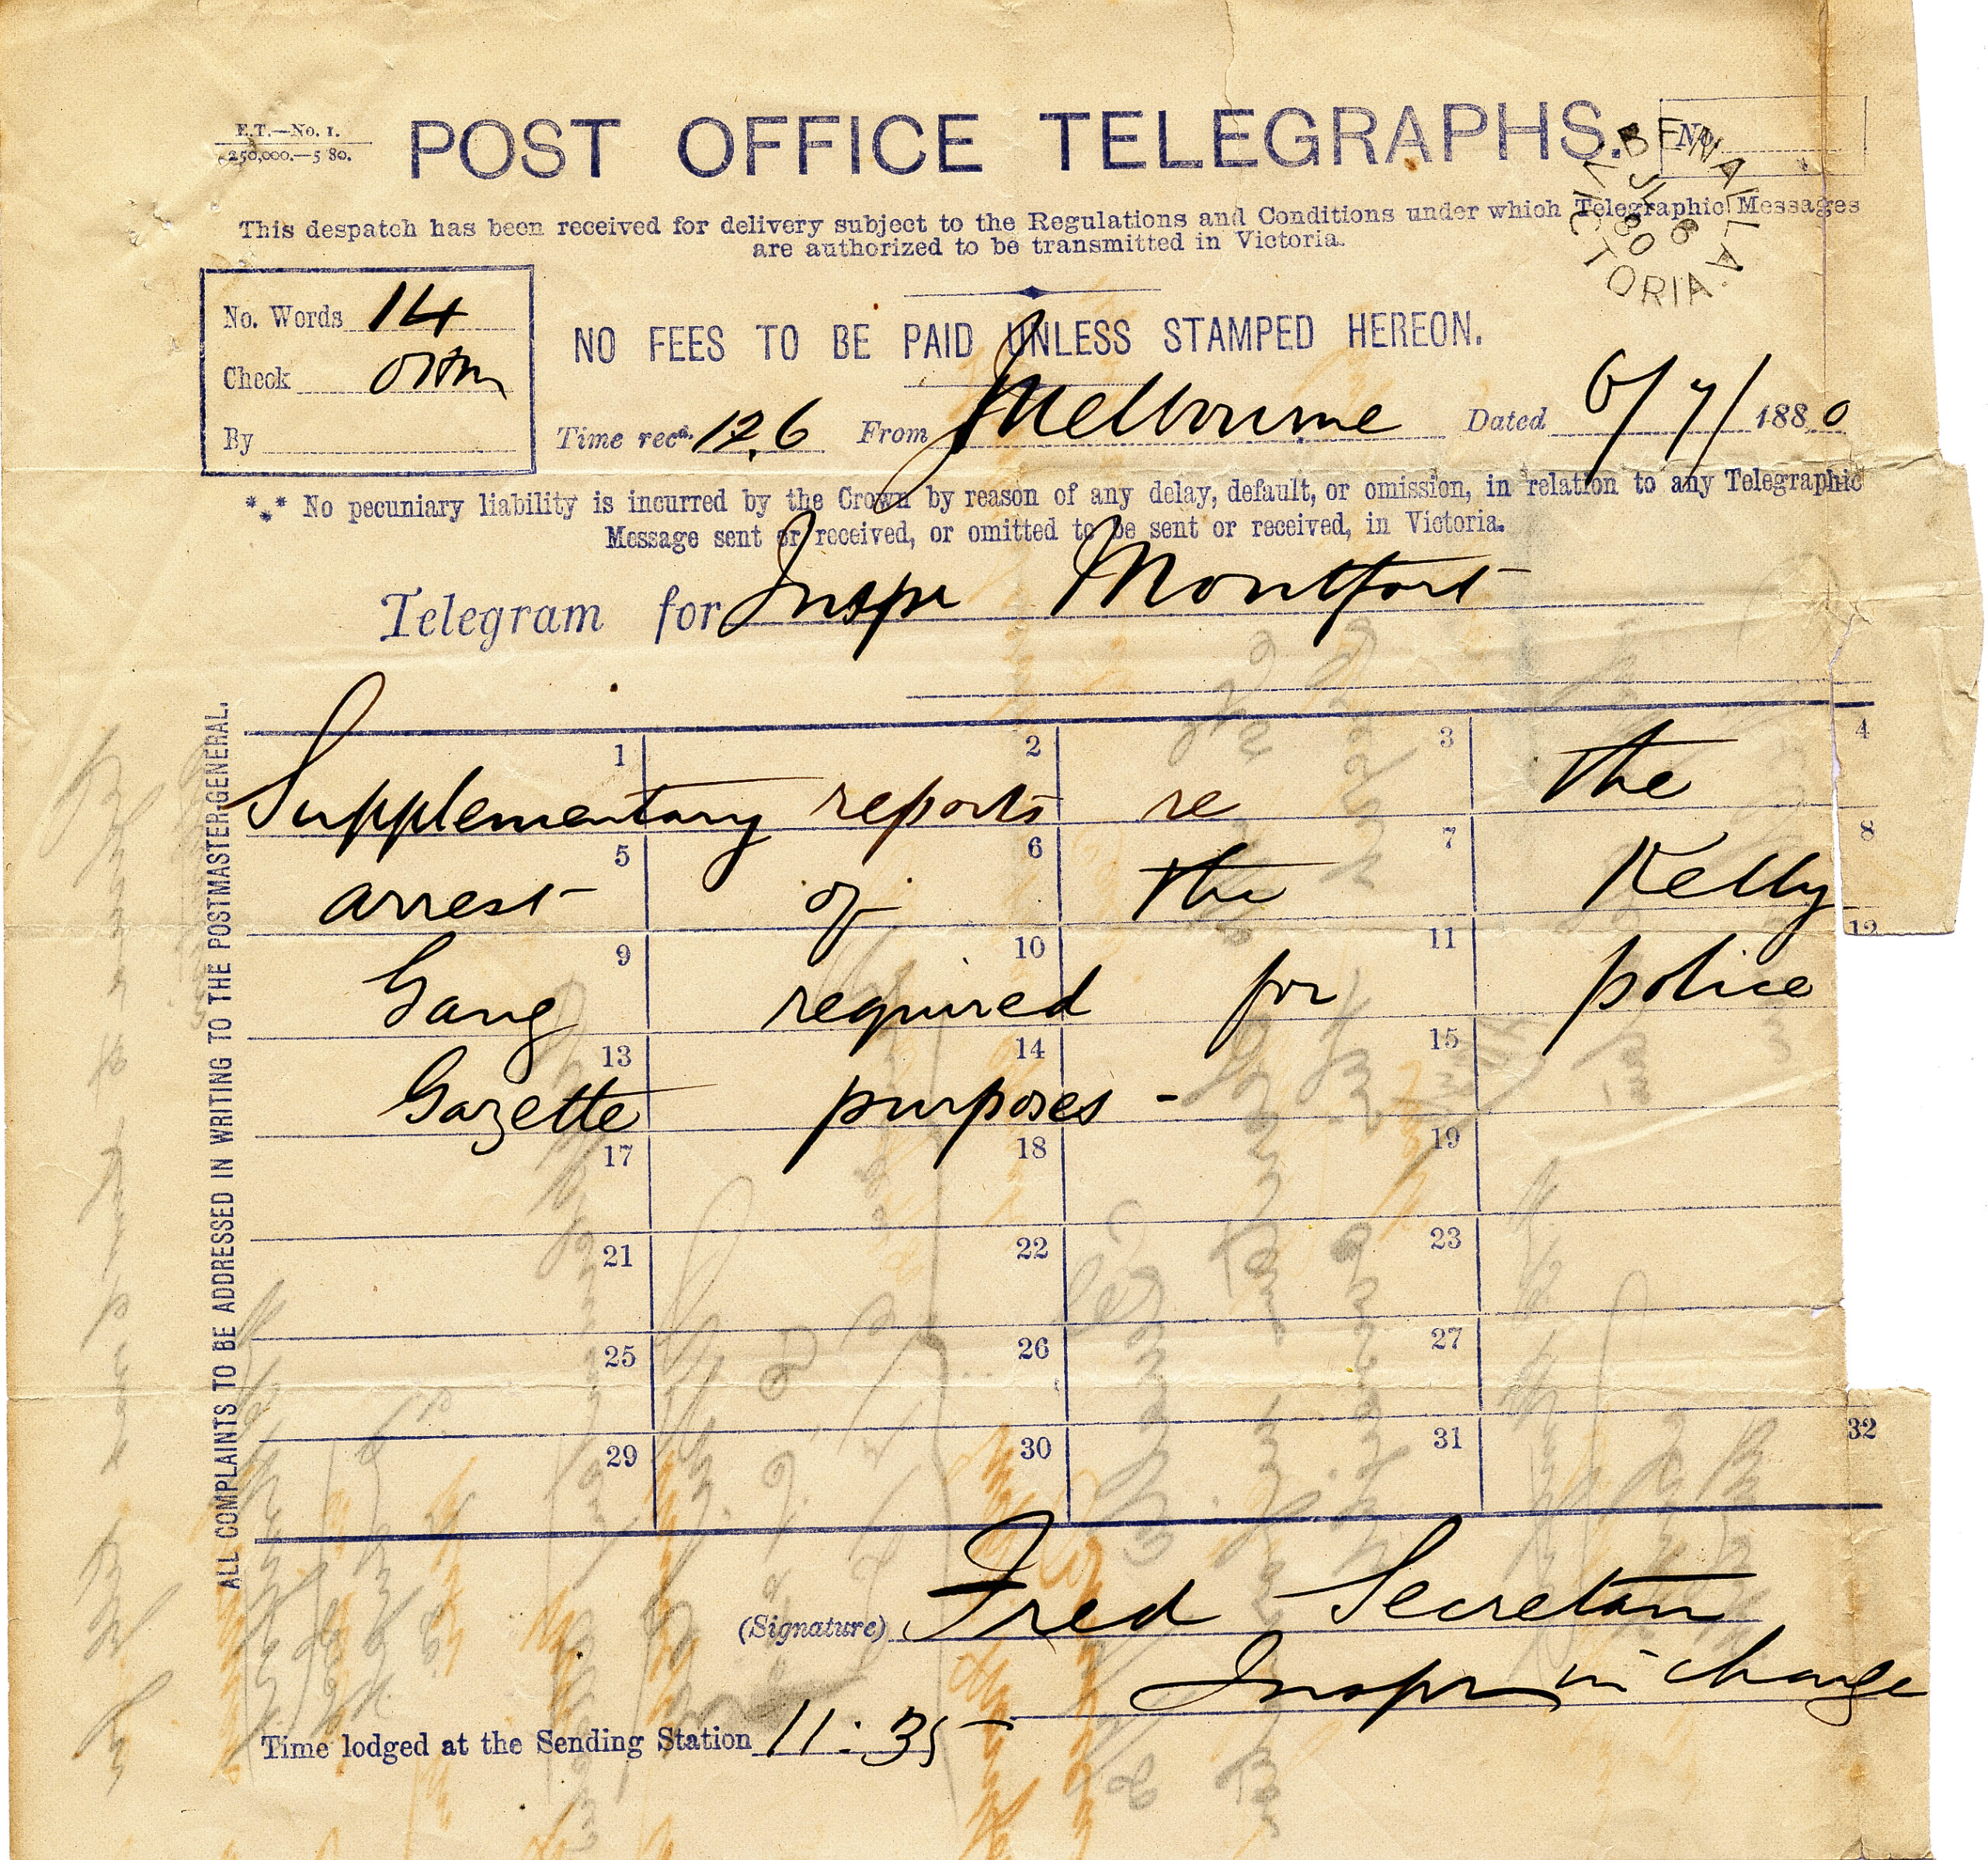 E.T.—No. 1.
250,000.—5 80.
POST OFFICE TELEGRAPHS.
No.
BENALLA
JL 6
80
VICTORIA.
This despatch has been received for delivery subject to the Regulations and Conditions under which Telegraphic Messages
are authorized to be transmitted in Victoria.
No. Words 14
Check
By
NO FEES TO BE PAID UNLESS STAMPED HEREON.
Time recd. 12.6 From Melbourne Dated 6/7/1880
*** No pecuniary liability is incurred by the Crown by reason of any delay, default, or omission, in relation to any Telegraphic
Message sent or received, or omitted to be sent or received, in Victoria.
Telegram for Inspr Montfort
ALL COMPLAINTS TO BE ADDRESSED IN WRITING TO THE POSTMASTER-GENERAL.
1 2 3 4
Supplementary reports re the
5 6 7 8
arrest of the Kelly
9 10 11 12
Gang required for police
13 14 15
Gazette purposes -
17 18 19
21 22 23
25 26 27
29 30 31 32
(Signature) Fred Secretan
Inspr in charge
Time lodged at the Sending Station 11.35